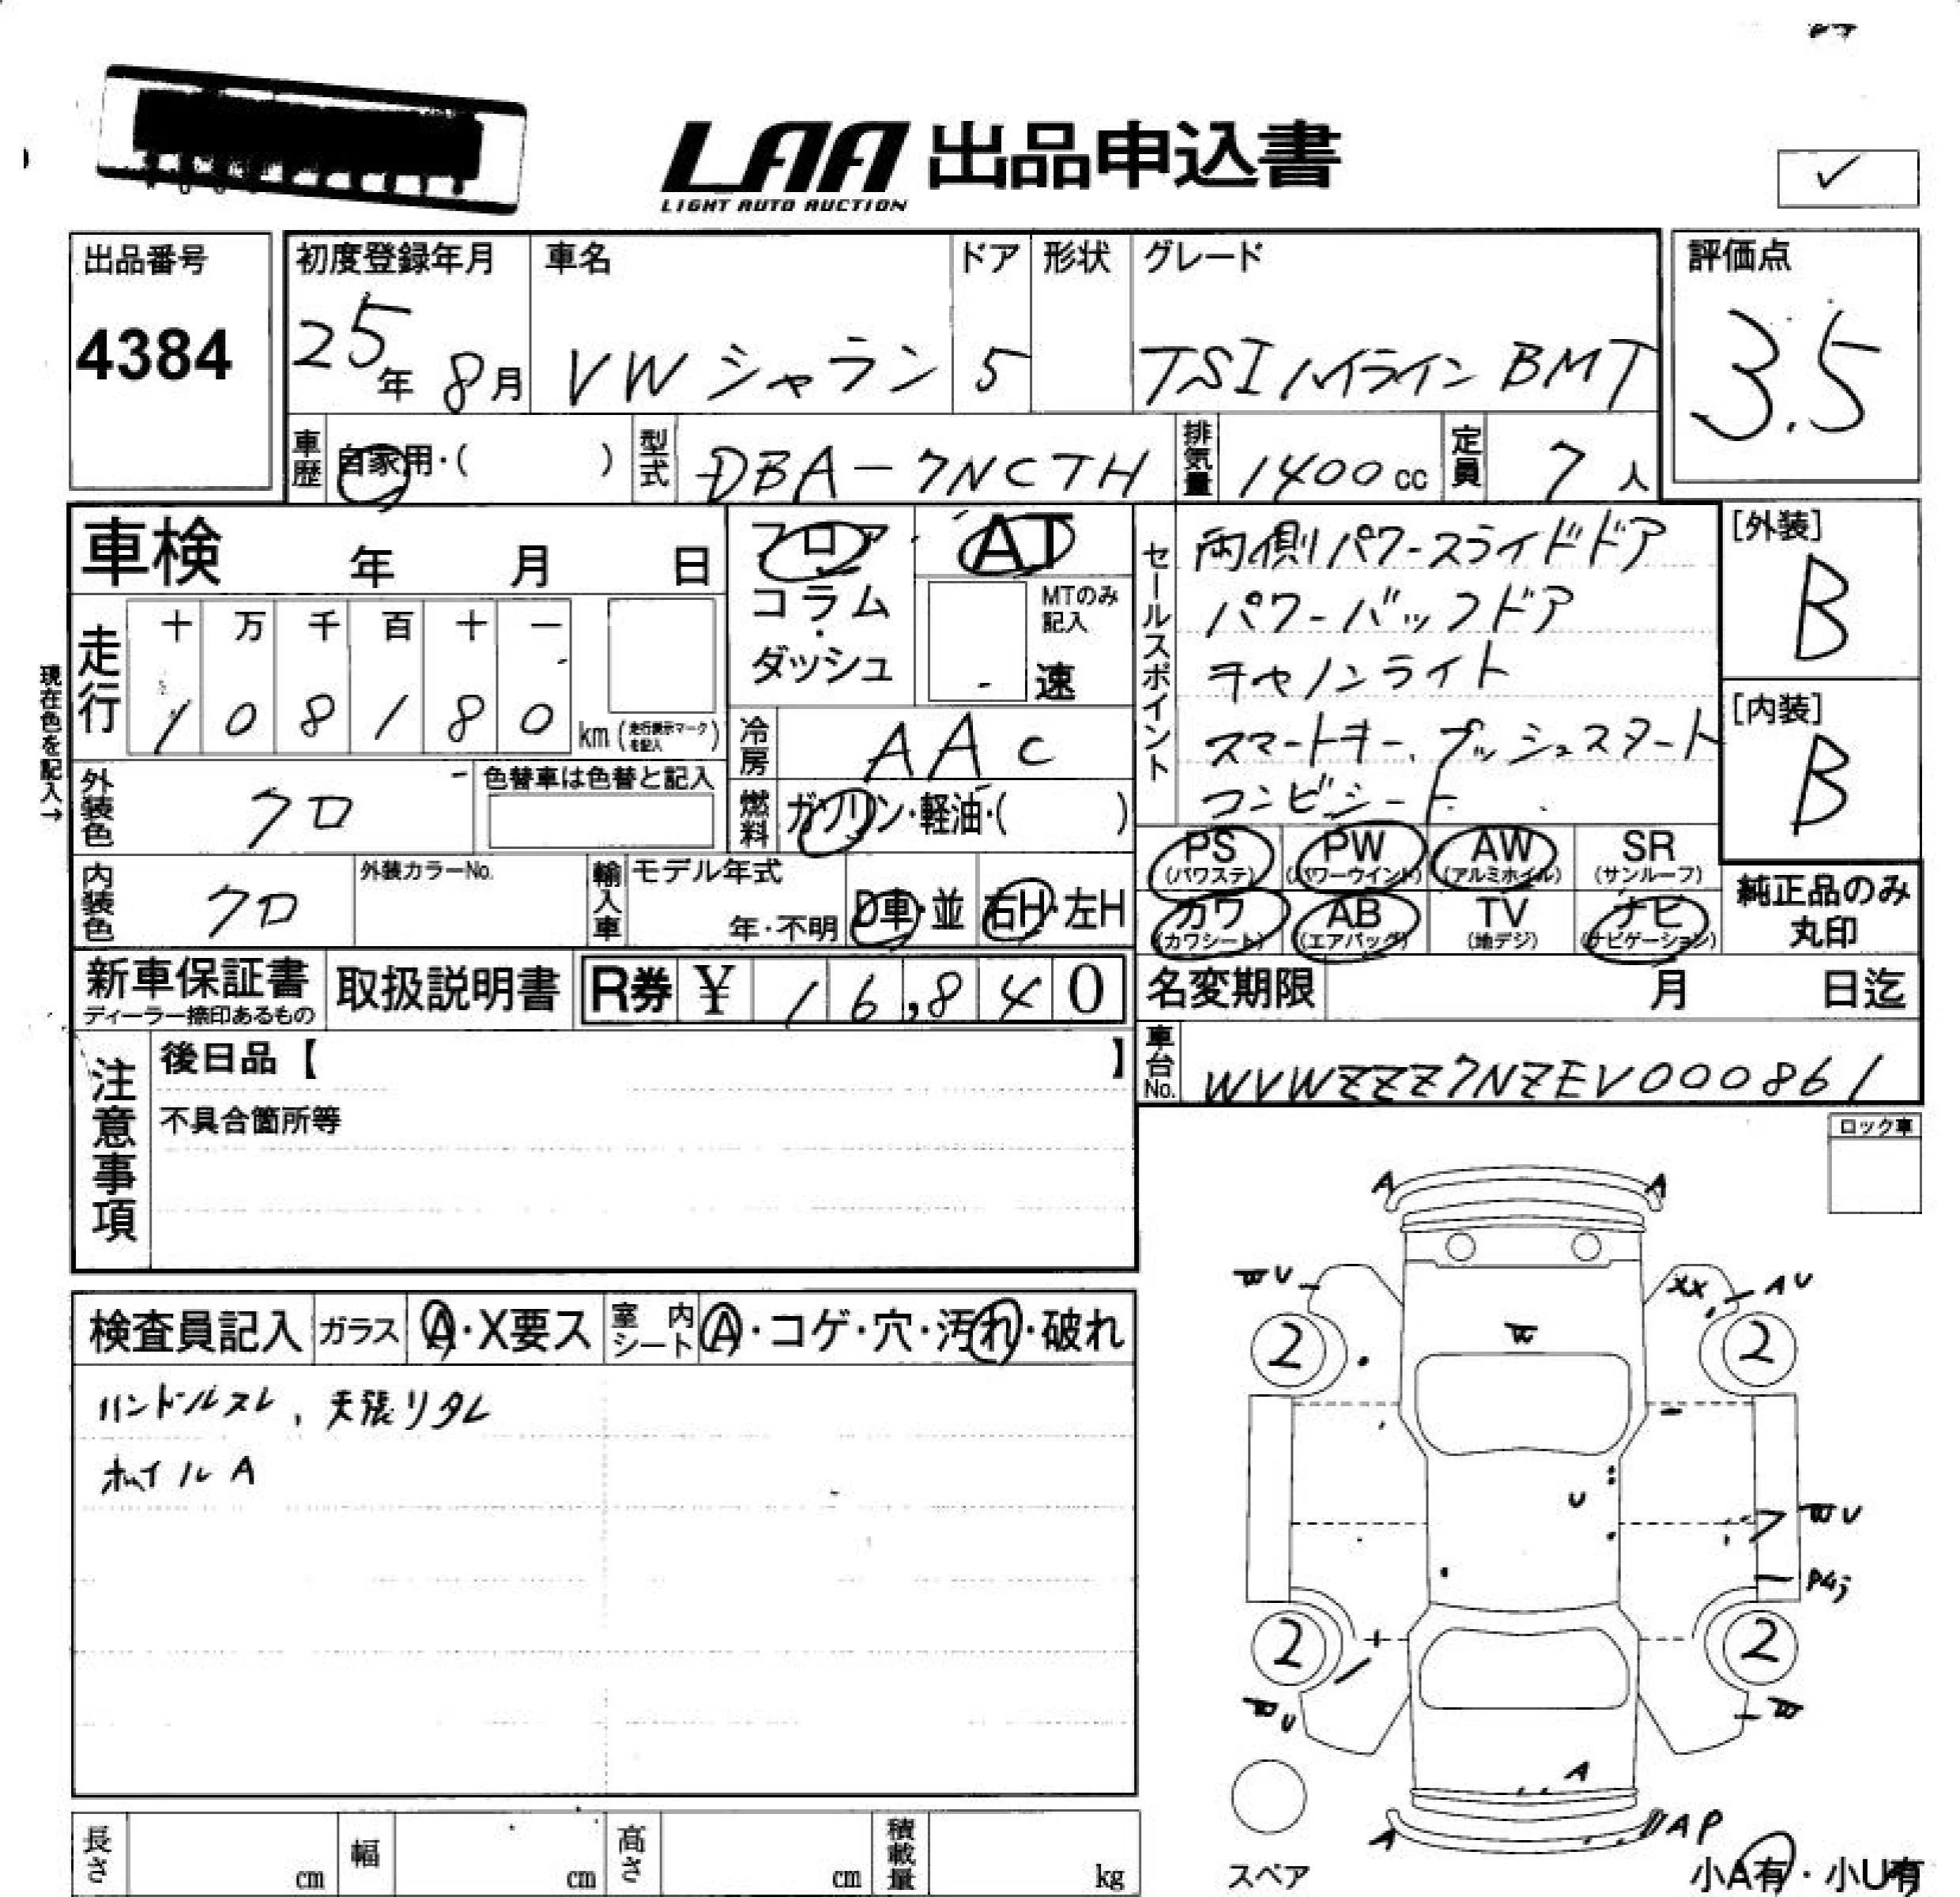 LAA 出品申込書
LIGHT AUTO AUCTION
✓
出品番号
4384
初度登録年月
25年 8月
車名
VW シャラン
ドア
5
形状
グレード
TSI ハイライン BMT
評価点
3.5
車歴
自家用・( )
型式
DBA-7NCTH
排気量
1400 cc
定員
7 人
車検 年 月 日
フロア・
コラム・
ダッシュ
AT
MTのみ記入
速
セールスポイント
両側パワースライドドア
パワーバックドア
チャノンライト
スマートキー、プッシュスタート
コンビシート
[外装]
B
[内装]
B
現在色を記入→
走行
十 万 千 百 十 一
1 0 8 1 8 0
km (走行表示マークを記入)
冷房
AAC
外装色
クロ
色替車は色替と記入
燃料
ガソリン・軽油・( )
内装色
クロ
外装カラーNo.
輸入車
モデル年式
年・不明
D車・並
右H・左H
PS (パワステ)
PW (パワーウインド)
AW (アルミホイル)
SR (サンルーフ)
カワ (カワシート)
AB (エアバッグ)
TV (地デジ)
ナビ (ナビゲーション)
純正品のみ
丸印
新車保証書
ディーラー捺印あるもの
取扱説明書
R券 ¥ 16,840
名変期限 月 日迄
車台No.
WVWZZZ7NZEV000861
注意事項
後日品【 】
不具合箇所等
ロック車
検査員記入
ガラス
A・X要ス
室内シート
A・コゲ・穴・汚れ・破れ
ハンドルスレ、天張リタレ
ホイルA
A
A
W U
XX
A U
2
2
W
U
W U
2
2
W U
W
A
A
A P
スペア
小A有・小U有
長さ
cm
幅
cm
高さ
cm
積載量
kg